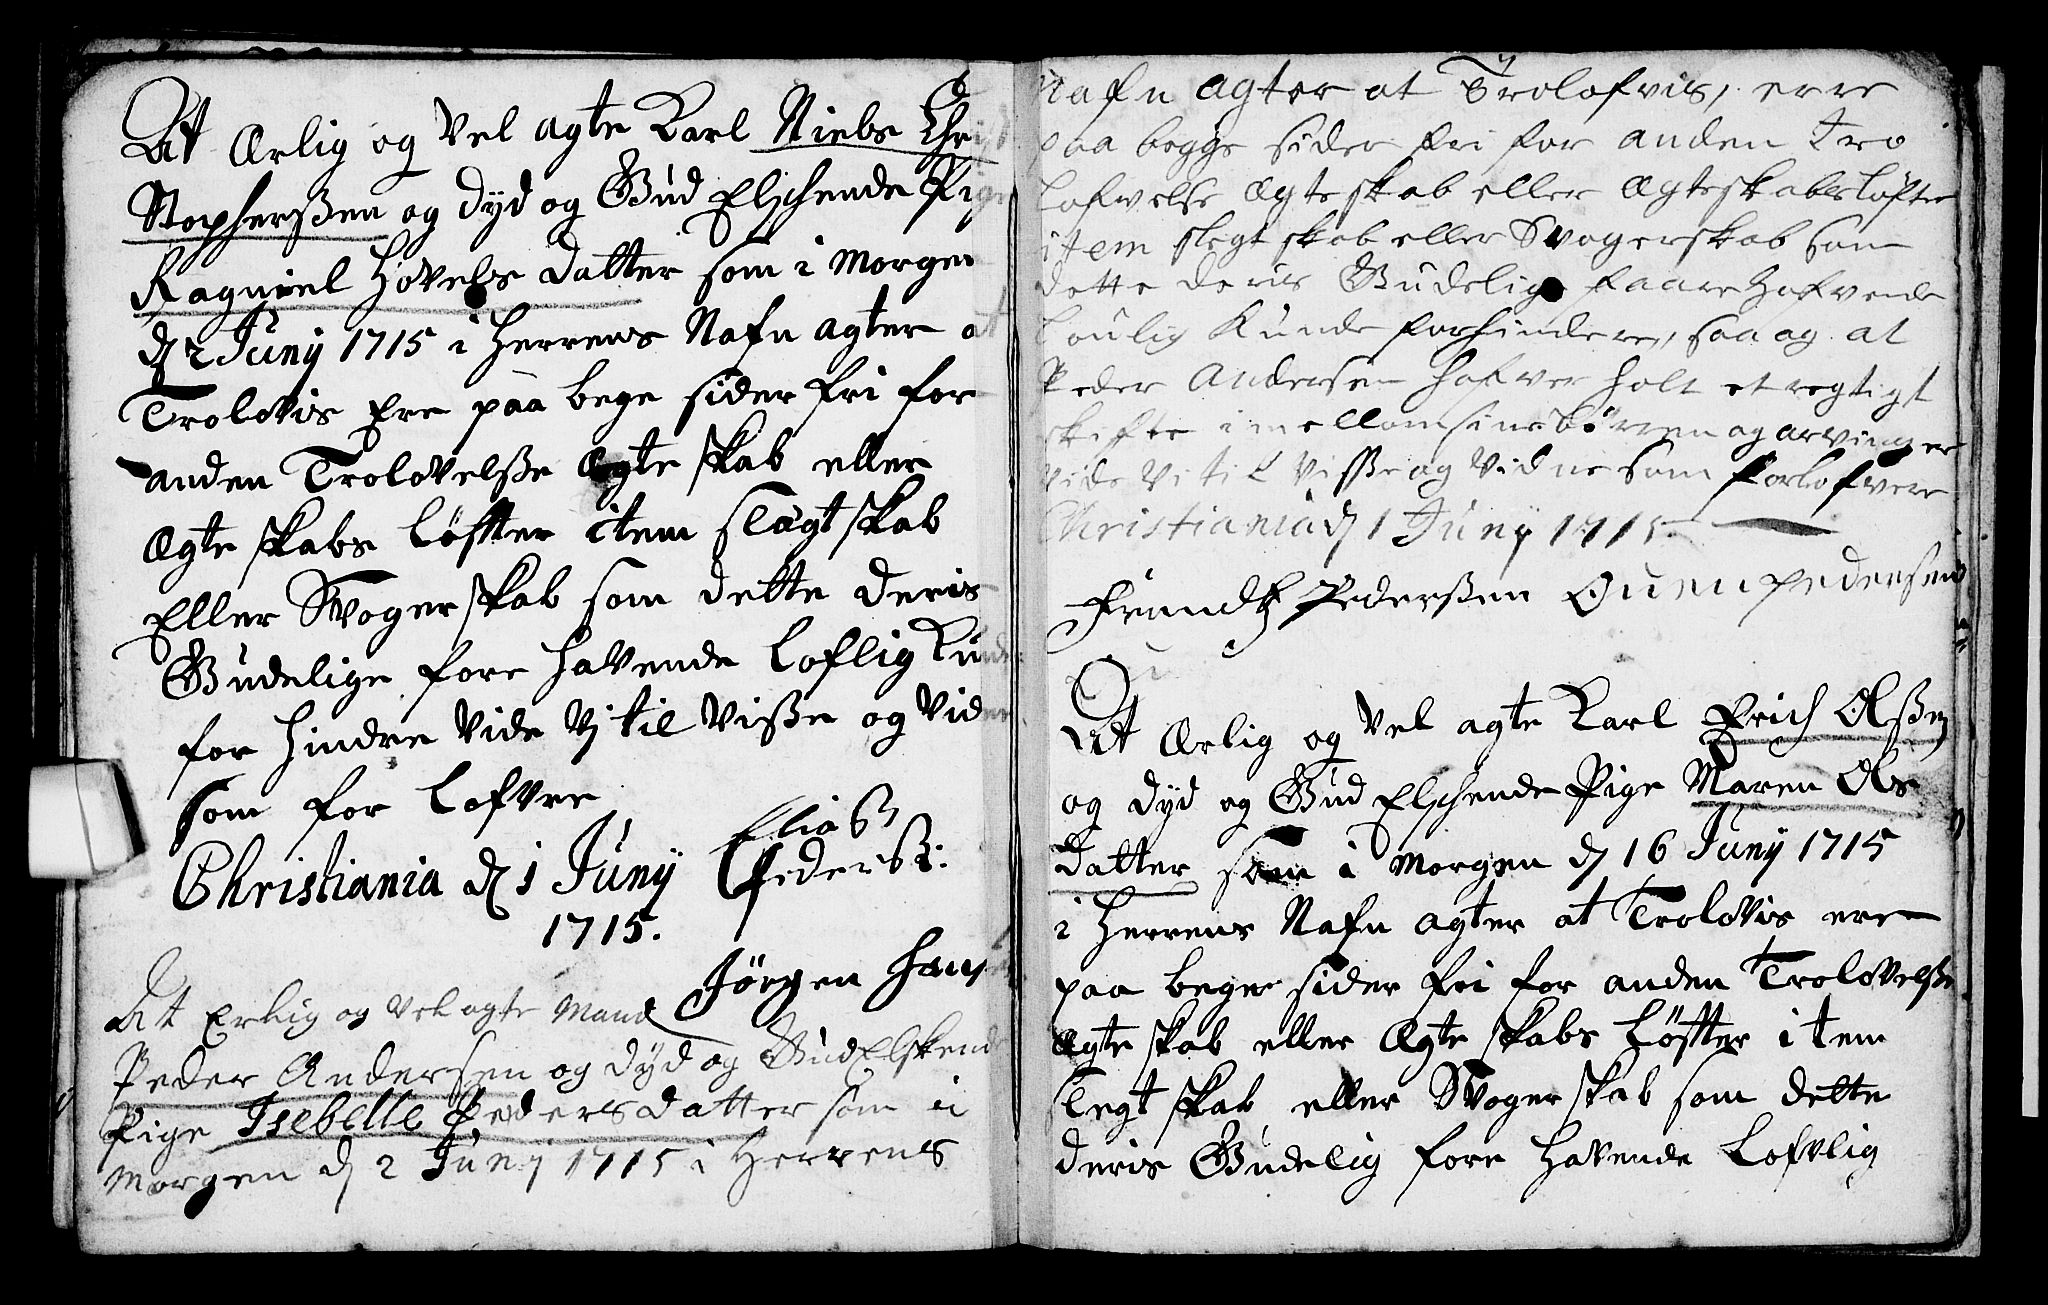 At Ærlig og Vel agte Karl Niels Christ
Stopherßen og dyd og Gud Elschende Pige
Ragniel Hovels datter som i Morgen
d 2 Juny 1715 i Herrens Nafn agter at
Trolovis Ere paa bege sider fri for
anden Trolovelße Ægte skab eller
Ægte skabs løffter item slægt skab
Eller Svoger skab som dette deris
Gudelige fore havende Loflig Kunde
for hindre Vide Vj til Viße og Vidne
som for Lofvre
Christiania d 1 Juny Eliaß
1715. Pederß:
Jörgen Hanß
At Erlig og Vel agte Mand
Peder Andersen og dyd og Gud Elskende
Pige Isebelle Peders datter som i
Morgen d 2 Juny 1715 i Herrens
Nafn agter at Trolofvis, erre
paa begge sider fri for anden Tro
lofvelse Ægte skab eller Ægteskabs løfte
item slegt skab eller Svogerskab som
dette deris Gudelige faare hafvende
Loulig Kunde forhindere, saa og at
Peder Andersen hafver holt et regtigt
skifte imellom sine børren og arvinger
vide vi til visse og vidne som forlofvere
Christiania d 1 Juny 1715
Frandtz Pederßen Ouen Pedersen
At Ærlig og Vel agte Karl Erich Olßen
og dyd og Gud Elschende Pige Maren Ols
datter som i Morgen d 16 Juny 1715
i Herrens Nafn agter at Trolovis ere
paa bege sider fri for anden Trolovelße
Ægte skab eller Ægte skabs Løffter item
slegt skab eller Svoger skab som dette
deris Gudelig fore havende Lofvlig